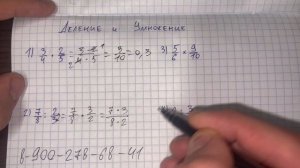 Деление и Умножение
1) 3/4 · 2/5 = 3 · 2 1 / 2 4 · 5 = 3/10 = 0,3 3) 5/6 · 9/10
2) 7/8 : 2/3 = 7/8 · 3/2 = 7 · 3 / 8 · 2
8-900-278-68-41